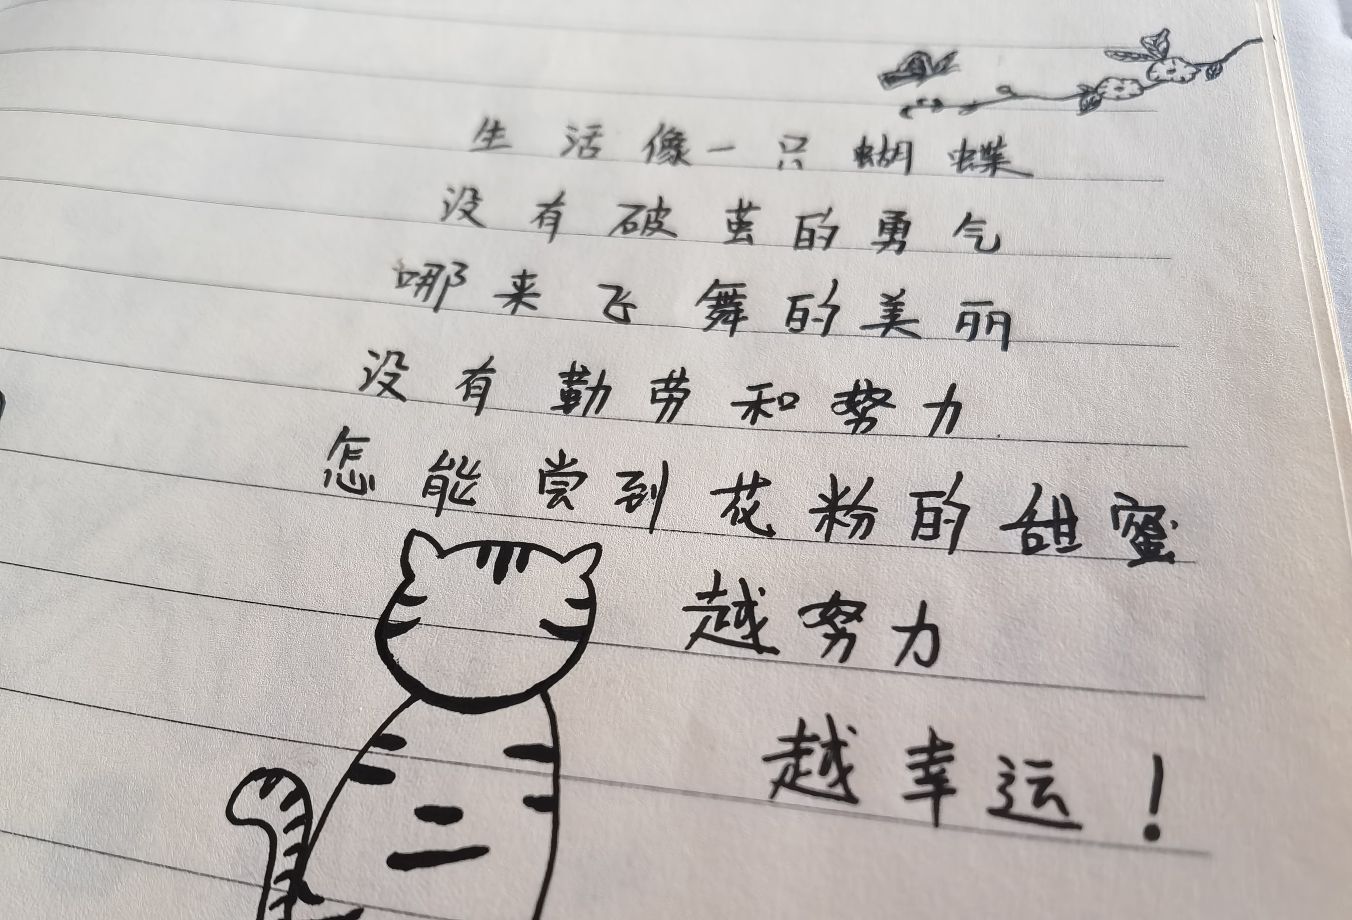 生活像一只蝴蝶
没有破茧的勇气
哪来飞舞的美丽
没有勤劳和努力
怎能尝到花粉的甜蜜
越努力
越幸运！